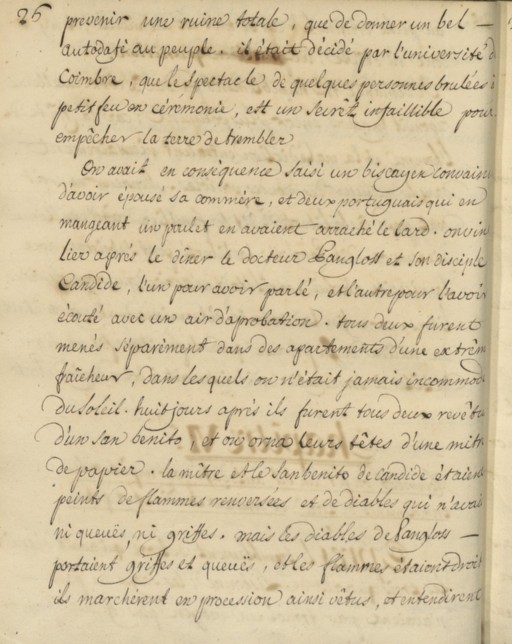 26
prevenir une ruine totale, que de donner un bel —
autodafé au peuple. il était décidé par l'université d
Coimbre, que le spectacle de quelques personnes brulées à
petit feu en céremonie, est un secrêt infaillible pour
empêcher la terre de trembler
On avait en conséquence saisi un biscayen convain
d'avoir épousé sa commére, et deux portuguais qui en
mangeant un poulet en avaient arraché le lard. on vin
lier aprés le dîner le docteur Pangloss et son disciple
Candide, l'un pour avoir parlé, et l'autre pour l'avoir
écouté avec un air d'aprobation. tous deux furent
menés séparément dans des apartements d'une extrêm
fraîcheur, dans lesquels on n'était jamais incommod
du soleil. huit jours aprés ils furent tous deux revêtu
d'un san benito, et on orna leurs têtes d'une mitr
de papier. la mître et le san benito de candide étaien
peints de flammes renversées et de diables qui n'avai
ni queuës, ni griffes. mais les diables de Pangloss —
portaient griffes et queuës, et les flammes étaient droit
ils marchérent en procession ainsi vêtus, et entendirent